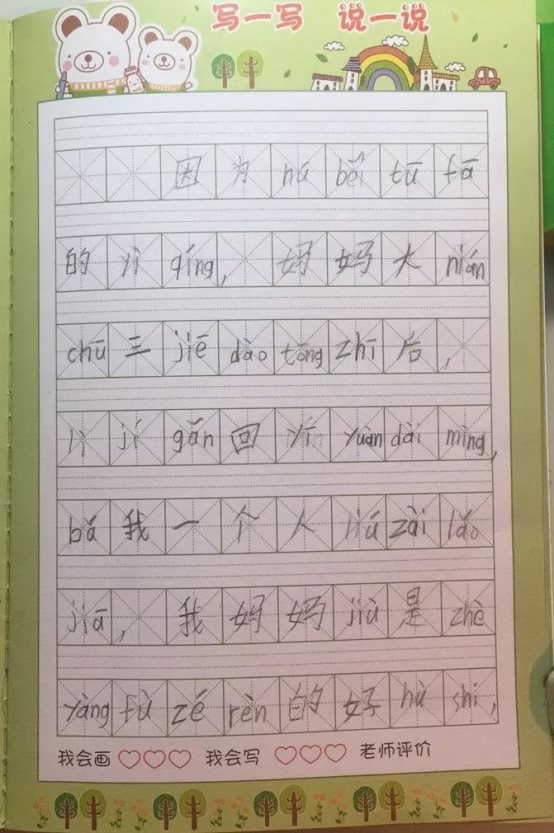 写一写 说一说
因为 hú běi tū fā
的 yì qíng, 妈妈大 nián
chū 三 jiē dào tōng zhī 后,
lì jí gǎn 回 yī yuàn dài mìng,
bǎ 我一个人 liú zài lǎo
jiā, 我妈妈 jiù 是 zhè
yàng fù zé rèn 的好 hù shi,
我会画 ♡♡♡ 我会写 ♡♡♡ 老师评价